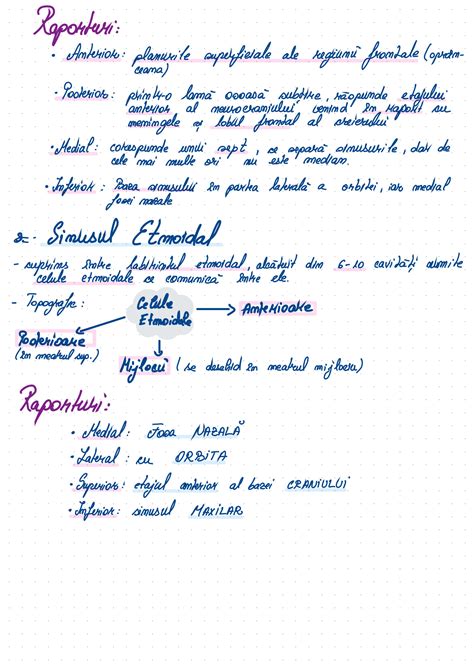 Raporturi:
• Anterior: planurile superficiale ale regiunii frontale (sprân-
ceana)
• Posterior: printr-o lamă osoasă subțire, răspunde etajului
anterior al neurocraniului venind în raport cu
meningele și lobul frontal al creierului
• Medial: corespunde unui sept, ce separă sinusurile, dar de
cele mai multe ori nu este median.
• Inferior: Baza sinusului în partea laterală a orbitei, iar medial
fosei nazale
2. Sinusul Etmoidal
- cuprins între labirintul etmoidal, alcătuit din 6-10 cavități numite
celule etmoidale ce comunică între ele.
- Topografie:
Celule
Etmoidale
→ Anterioare
Posterioare
(în meatul sup.)
Mijlocii (se deschid în meatul mijlociu)
Raporturi:
• Medial: Fosa NAZALĂ
• Lateral: cu ORBITA
• Superior: etajul anterior al bazei CRANIULUI
• Inferior: sinusul MAXILAR